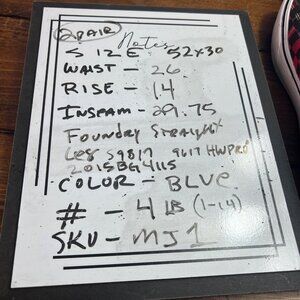 2 PAIR
Notes
SIZE - 52x30
WAIST - 26
RISE - 14
INSEAM - 29.75
FOUNDRY STRAIGHT
LEG 59817 9617 HWPRS
2015BG4115
COLOR - BLUE
# - 4 LB (1-14)
SKU - MJ1